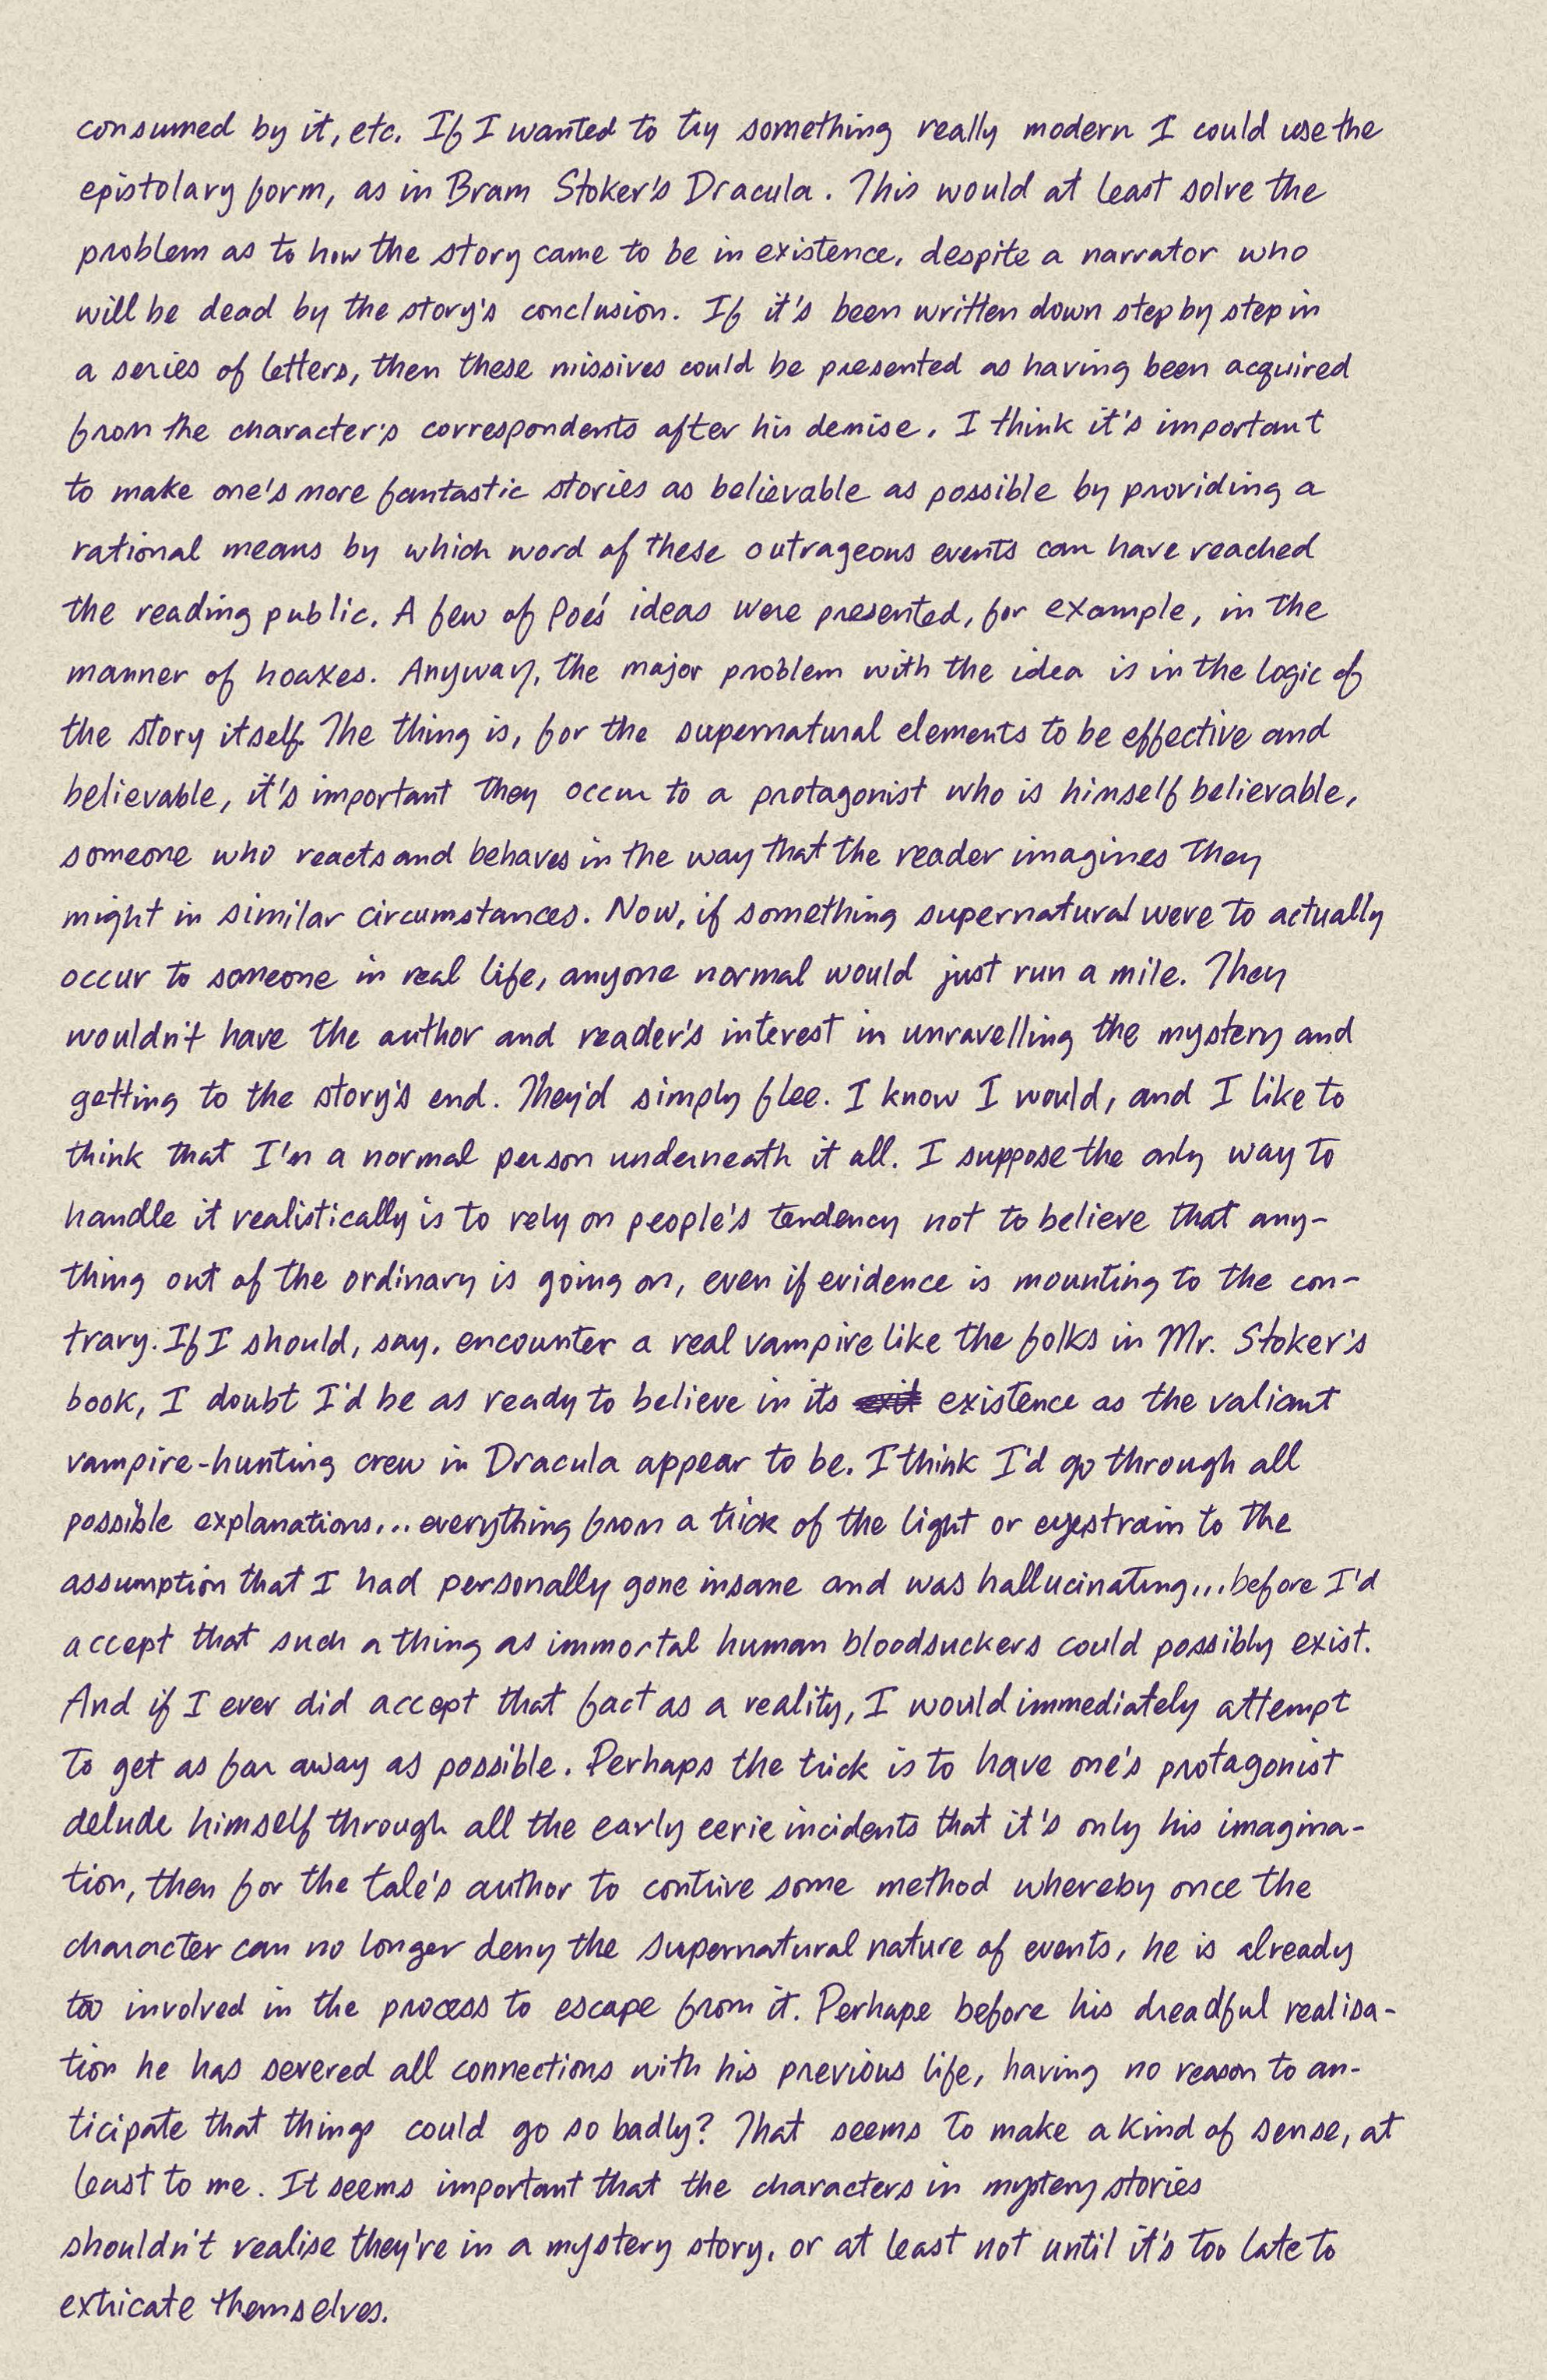 consumed by it, etc. If I wanted to try something really modern I could use the
epistolary form, as in Bram Stoker's Dracula. This would at least solve the
problem as to how the story came to be in existence, despite a narrator who
will be dead by the story's conclusion. If it's been written down step by step in
a series of letters, then these missives could be presented as having been acquired
from the character's correspondents after his demise. I think it's important
to make one's more fantastic stories as believable as possible by providing a
rational means by which word of these outrageous events can have reached
the reading public. A few of Poe's ideas were presented, for example, in the
manner of hoaxes. Anyway, the major problem with the idea is in the logic of
the story itself. The thing is, for the supernatural elements to be effective and
believable, it's important they occur to a protagonist who is himself believable,
someone who reacts and behaves in the way that the reader imagines they
might in similar circumstances. Now, if something supernatural were to actually
occur to someone in real life, anyone normal would just run a mile. They
wouldn't have the author and reader's interest in unravelling the mystery and
getting to the story's end. They'd simply flee. I know I would, and I like to
think that I'm a normal person underneath it all. I suppose the only way to
handle it realistically is to rely on people's tendency not to believe that any-
thing out of the ordinary is going on, even if evidence is mounting to the con-
trary. If I should, say, encounter a real vampire like the folks in Mr. Stoker's
book, I doubt I'd be as ready to believe in its exit existence as the valiant
vampire-hunting crew in Dracula appear to be. I think I'd go through all
possible explanations... everything from a trick of the light or eyestrain to the
assumption that I had personally gone insane and was hallucinating... before I'd
accept that such a thing as immortal human bloodsuckers could possibly exist.
And if I ever did accept that fact as a reality, I would immediately attempt
to get as far away as possible. Perhaps the trick is to have one's protagonist
delude himself through all the early eerie incidents that it's only his imagina-
tion, then for the tale's author to contrive some method whereby once the
character can no longer deny the supernatural nature of events, he is already
too involved in the process to escape from it. Perhaps before his dreadful realisa-
tion he has severed all connections with his previous life, having no reason to an-
ticipate that things could go so badly? That seems to make a kind of sense, at
least to me. It seems important that the characters in mystery stories
shouldn't realise they're in a mystery story, or at least not until it's too late to
extricate themselves.